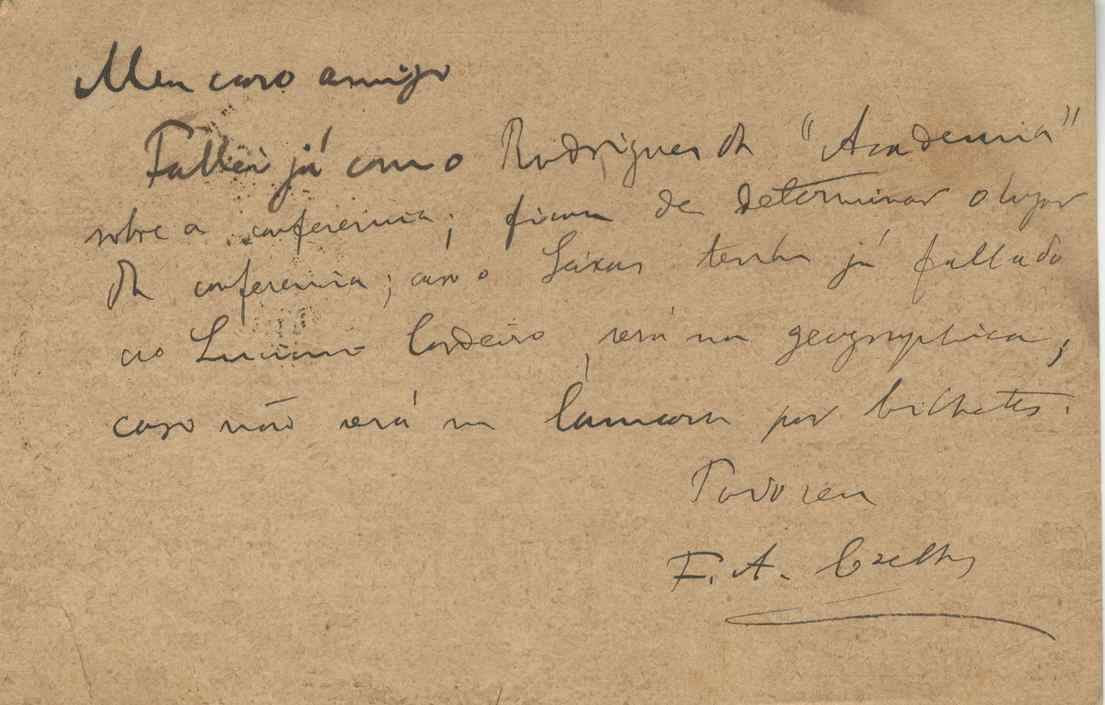 Meu caro amigo
Fallei já com o Rodrigues da "Academia"
sobre a conferencia; ficou de determinar o lugar
da conferencia; caso o Seixas tenha já fallado
ao Luciano Cordeiro, será na geographica;
caso não será na Camara por bilhetes.
Todo seu
F. A. Coelho